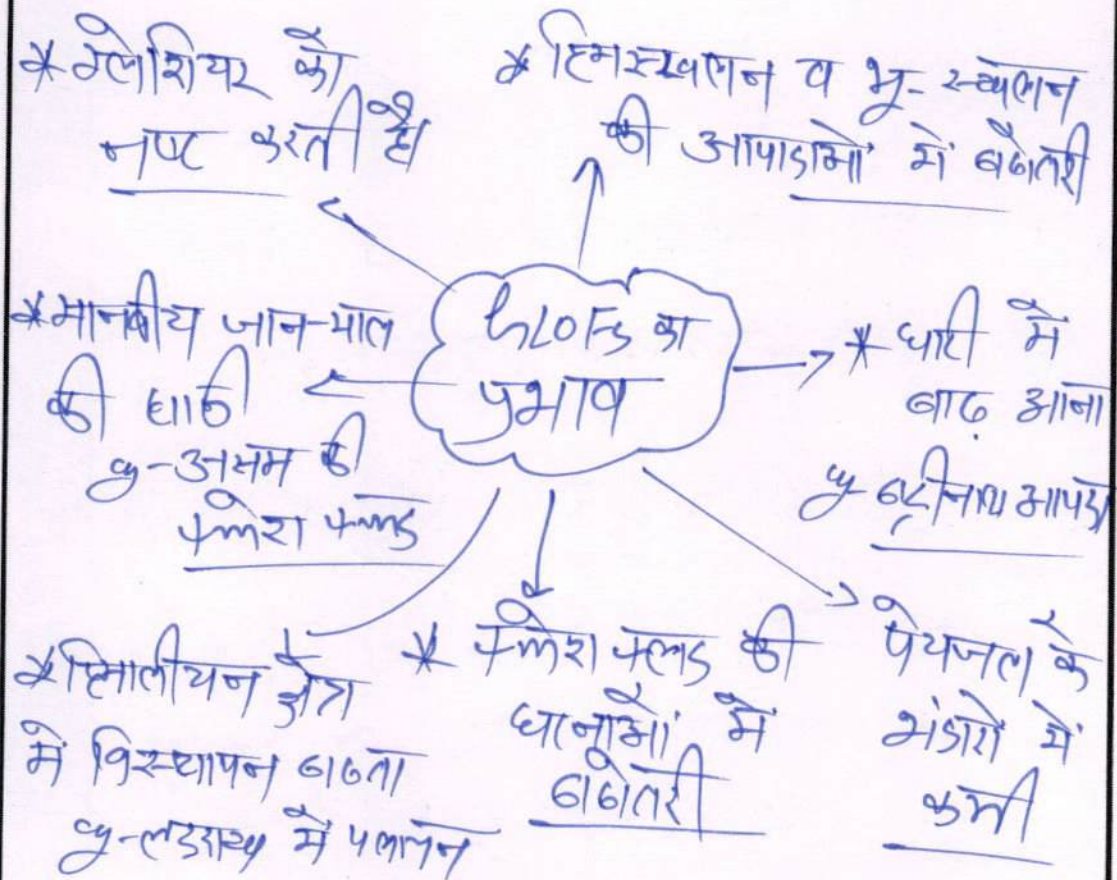 * ग्लेशियर को
नष्ट करती है।
* हिमस्खलन व भू-स्खलन
की आपदाओं में बढोतरी
GLOFs का
प्रभाव
* मानवीय जान-माल
की हानि
eg-असम की
फ्लैश फ्लड
* घाटी में
बाढ़ आना
eg-बद्रीनाथ आपदा
* हिमालीयन क्षेत्र
में विस्थापन बढता
eg-लद्दाख में पलायन
* फ्लैश फ्लड की
घटनाओं में
बढोतरी
पेयजल के
भंडारों में
कमी